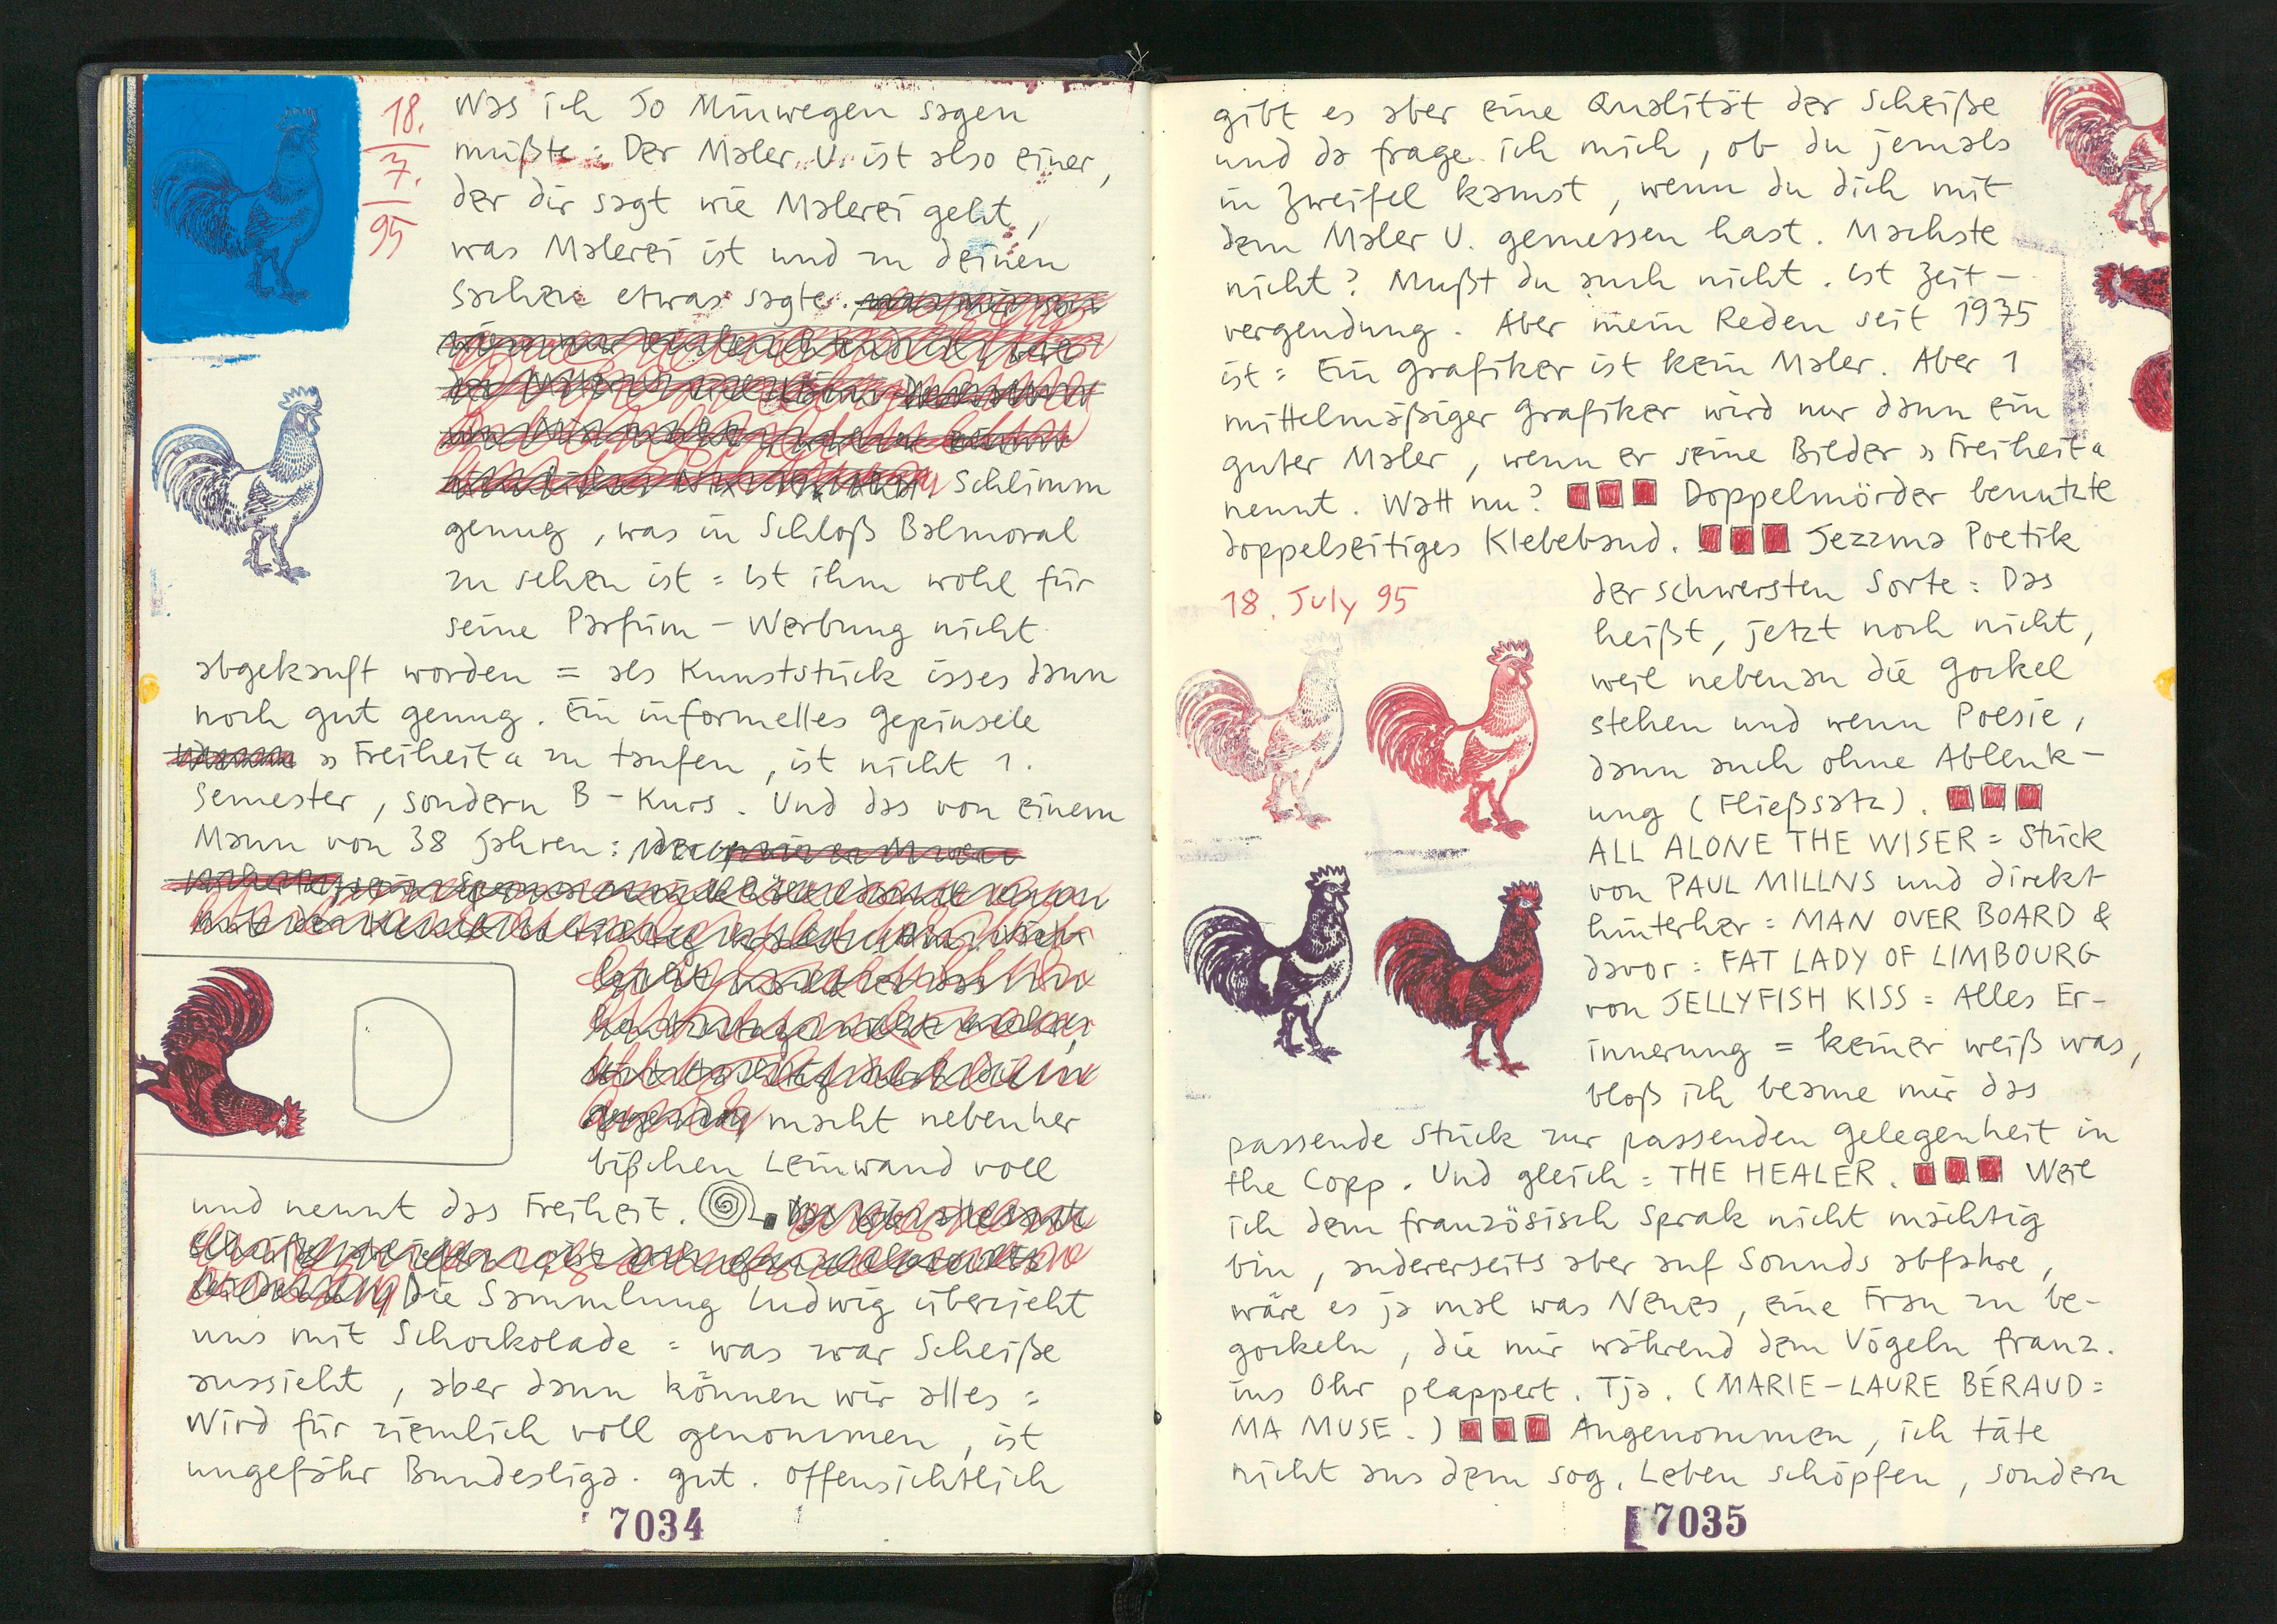 18.
7.
95
Was ich Jo Minwegen sagen
müßte: Der Maler U. ist also einer,
der dir sagt wie Malerei geht,
was Malerei ist und zu deinen
Sachen etwas sagte.
Schlimm
genug, was in Schloß Balmoral
zu sehen ist = ist ihm wohl für
seine Parfüm-Werbung nicht
abgekauft worden = als Kunststück isses dann
noch gut genug. Ein informelles Gepinsele
»Freiheit« zu taufen, ist nicht 1.
Semester, sondern B-Kurs. Und das von einem
Mann von 38 Jahren:
D
macht nebenher
bißchen Leinwand voll
und nennt das Freiheit.
Die Sammlung Ludwig überzieht
uns mit Schockolade = was zwar Scheiße
aussieht, aber dann können wir alles =
Wird für ziemlich voll genommen, ist
ungefähr Bundesliga. gut. Offensichtlich
7034
gibt es aber eine Qualität der Scheiße
und da frage ich mich, ob du jemals
in Zweifel kamst, wenn du dich mit
dem Maler U. gemessen hast. Machste
nicht? Mußt du auch nicht. ist Zeit-
vergendung. Aber mein Reden seit 1975
ist = Ein Grafiker ist kein Maler. Aber 1
mittelmäßiger Grafiker wird nur dann ein
guter Maler, wenn er seine Bilder »Freiheit«
nennt. Watt nu? Doppelmörder benutzte
doppelseitiges Klebeband. Jezzma Poetik
18. July 95
der schwersten Sorte: Das
heißt, jetzt noch nicht,
weil nebenan die Gockel
stehen und wenn Poesie,
dann auch ohne Ablenk-
ung (Fließsatz).
ALL ALONE THE WISER = Stück
von PAUL MILLNS und direkt
hinterher = MAN OVER BOARD &
davor = FAT LADY OF LIMBOURG
von JELLYFISH KISS = Alles Er-
innerung = keiner weiß was,
bloß ich beame mir das
passende Stück zur passenden Gelegenheit in
the Copp. Und gleich = THE HEALER. Weil
ich dem französisch Sprak nicht mächtig
bin, andererseits aber auf Sounds abfahre,
wäre es ja mal was Neues, eine Frau zu be-
gockeln, die mir während dem Vögeln franz.
ins Ohr plappert. Tja. (MARIE-LAURE BÉRAUD =
MA MUSE.) Angenommen, ich täte
nicht aus dem sog. Leben schöpfen, sondern
7035